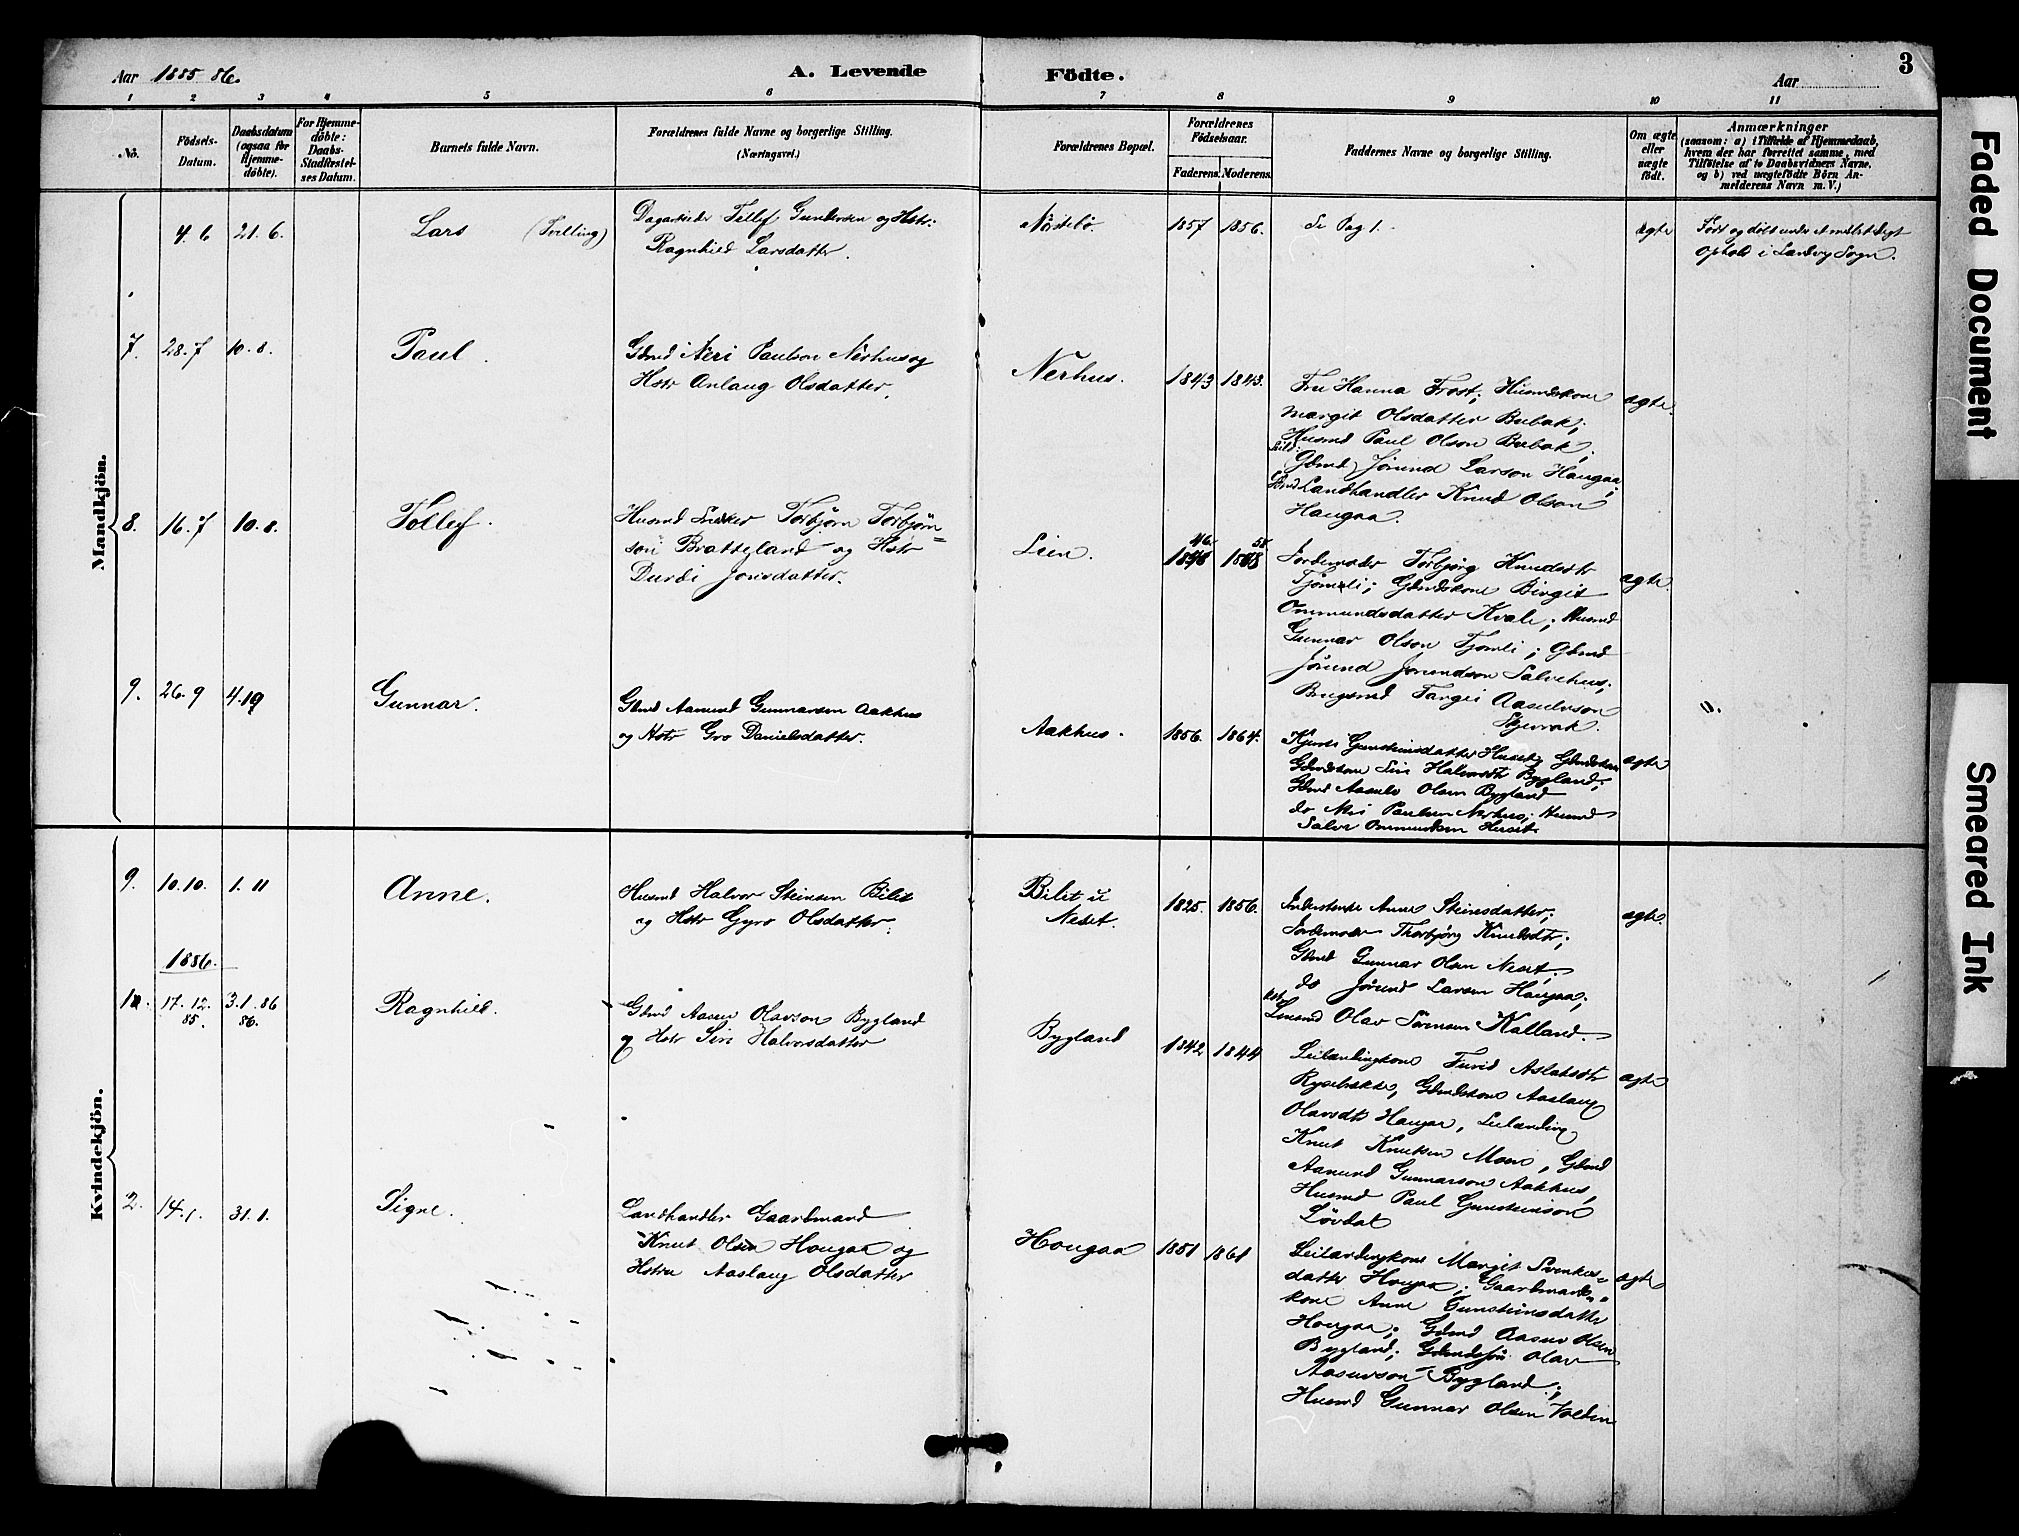 3
Aar 1885-86.
A. Levende Födte.
Aar
1 2 3 4 5 6 7 8 9 10 11
No.
Födsels-Datum.
Daabsdatum (ogsaa for Hjemme-döbte).
For Hjemme-döbte: Daabs-Stadfæstel-ses Datum.
Barnets fulde Navn.
Forældrenes fulde Navne og borgerlige Stilling.
(Næringsvei.)
Forældrenes Bopæl.
Forældrenes Födselsaar.
Faderens. Moderens.
Faddernes Navne og borgerlige Stilling.
Om ægte eller uægte födt.
Anmærkninger
(saasom: a) i Tilfælde af Hjemmedaab,
hvem der har forrettet samme, med
Tilföielse af to Daabsvidners Navne.
og b) ved uægtefödte Börn An-
melderens Navn m. V.)
Mandkjön.
4. 6 21. 6. Lars (Tvilling)
Dagarbeider Tellef Gundersen og Hstr:
Ragnhild Larsdatter.
1857 1856.
Se Pag 1.
ægte
Født og døbt under et midlertidigt
Ophold i Landvig Sogn.
7. 28. 7 10. 8. Paul.
Gbmd Neri Paulson Nerhus og
Hstr Anlaug Olsdatter.
Nerhus. 1843 1843.
Fru Hanna Frost; Husmdskone
Margit Olsdatter Bubak;
Husmd Paul Olson Bubak;
Gbmd Jørund Larson Haugaa;
Landhandler Knud Olson
Haugaa.
ægte.
8. 16. 7 10. 8. Tollef.
Husmd Sneker Torbjørn Torbjørn=
son Bratteland og Hstr
Durdi Jonsdatter.
Lien.
46. 58
Jordemoder Torbjørg Knudsdtr
Tjømli; Gbmdskone Birgit
Ommundsdatter Kvale; Husmd
Gunnar Olson Tjomli; Gbmd
Jørund Jorundson Salvehus;
Brugsmd Targei Aasulvson
Skjevrak.
ægte.
9. 26. 9 4. 19 Gunnar.
Gbmd Aamund Gunnarsen Aakhus
og Hstr Gro Danielsdatter.
Aakhus. 1856. 1864.
Gunsteinsdatter
Gbmdskone Siri Halvorsdt Bygland;
Gbmd Aasulv Olsen Bygland
do Neri Paulsen Nerhus; Husmd
Salve Ommundsen
ægte
Kvindekjön.
9. 10. 10. 1. 11 Anne.
Husmd Halvor Steinsen Bilit
og Hstr Gyro Olsdatter.
Bilit u
Neset.
1825. 1856.
Anne Steinsdatter;
Jordemoder Thorbjörg Knudsdtr;
Gbmd Gunnar Olsen Neset;
do Jørund Larsen Haugaa;
Olav Sørensen Kalland.
ægte.
1886.
17. 12. 85. 3. 1. 86 86. Ragnhild.
Gbmd Aasen Olavson Bygland
og Hstr Siri Halvorsdatter
Bygland 1842 1844
Leilændingkone Turid Aslaksdtr
Gbmdskone Aaslaug
Olavsdtr Haugaa, Leilænding
Knut Knutsen Moen, Gbmd
Aamund Gunnarson Aakhus,
Husmd Paul Gunsteinson
Lövdal
ægte
2. 14. 1. 31. 1. Signe.
Landhandler Gaardmand
Knut Olsen Hougaa og
Hstru Aaslaug Olsdatter
Hougaa 1851 1861
Leilændingkone Margit Svenkes=
datter Hougaa; Gaardmands
kone Anne Gunsteinsdatter
Hougaa; Gbmd Aasuv Olsen
Bygland; Gbmdssøn Olav
Aasuvson Bygland;
Husmd Gunnar Olsen
ægte
Faded Document
Smeared Ink